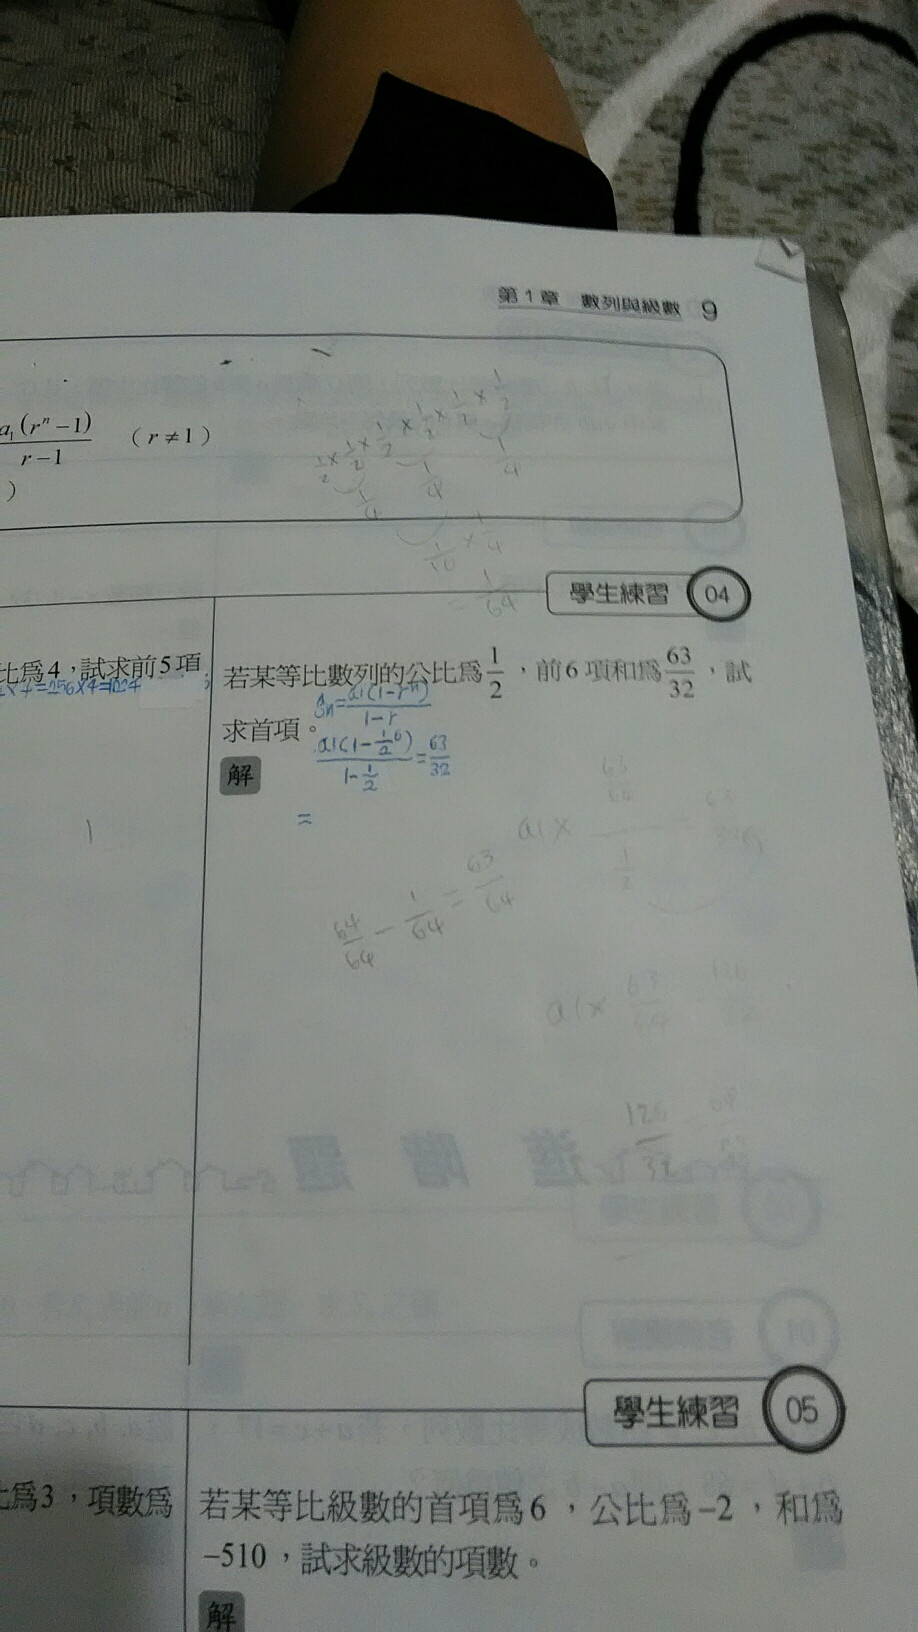 第1章 數列與級數 9
a₁(rⁿ−1)
r−1
(r≠1)
)
1/2×1/2×1/2×1/2×1/2×1/2
1/4 1/4 1/4
1/16×1/4
=1/64
學生練習 04
比為4，試求前5項
=256×4=1024
若某等比數列的公比為1/2，前6項和為63/32，試
求首項。
Sn=a1(1-rⁿ)/1-r
解
a1(1-1/2⁶)/1-1/2=63/32
=
a1×
64/64-1/64=63/64
a1×63/64
126/32
學生練習 05
比為3，項數為
若某等比級數的首項為6，公比為−2，和為
−510，試求級數的項數。
解